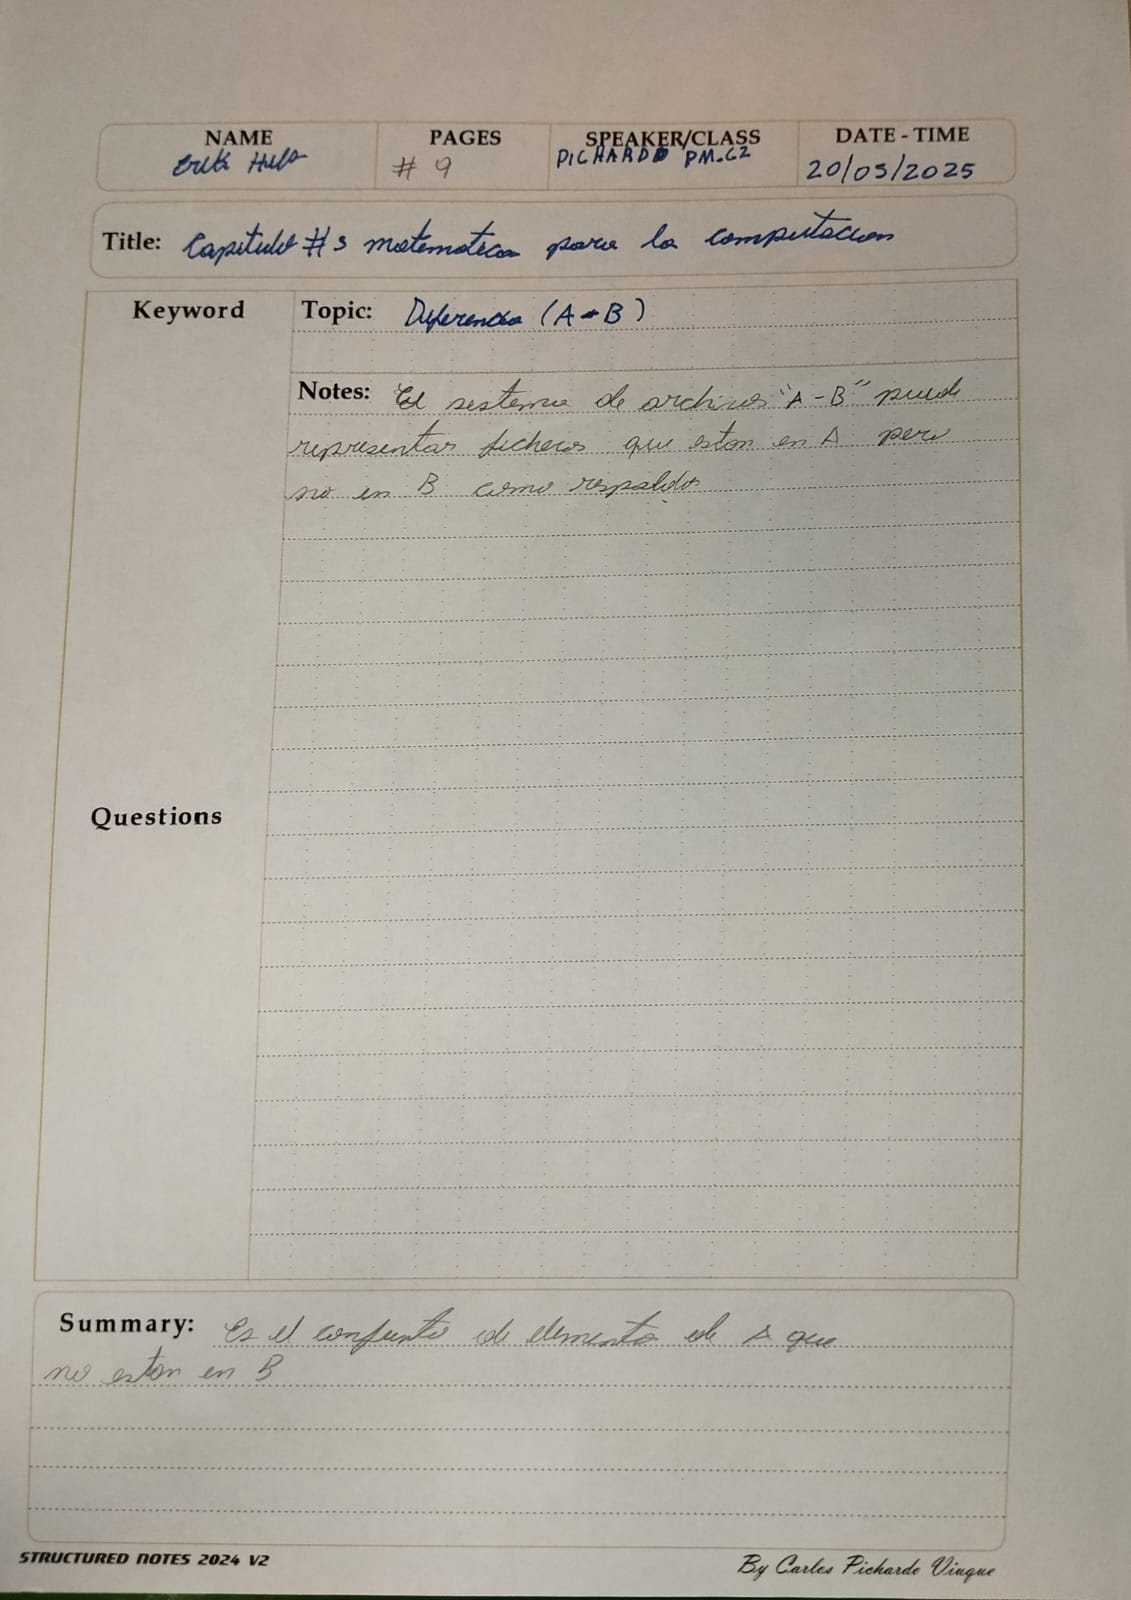 NAME PAGES SPEAKER/CLASS DATE - TIME
Erik # 9 PICHARDO PM.C2 20/05/2025
Title: Capitulo #3 matematica para la computacion
Keyword Topic: Diferencia (A - B)
Notes: El sistema de archivos "A - B" puede
representar ficheros que estan en A pero
no en B como respaldos
Questions
Summary: Es el conjunto de elemento de A que
no estan en B
STRUCTURED NOTES 2024 V2 By Carlos Pichardo Viuque